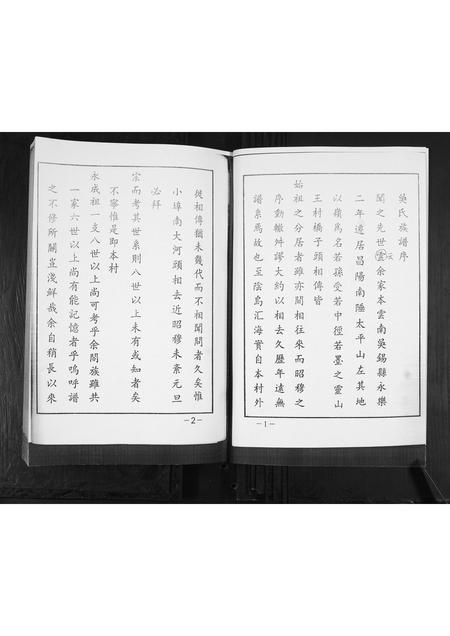 吳氏族譜序
聞之先世雲余家本雲南吳錫縣永樂
云
二年遷居昌陽南隅太平山左其地
以嶺為名若孫受若中徑若墨之靈山
王村橋子頭相傳皆
始祖之分居者雖亦間相往來而昭穆之
序動輙舛謬大約以相去久歷年遠無
譜系焉故也至陰島汇海實自本村外
-1-
徙相傳猶未幾代而不相聞問者久矣惟
小埠南大河頭相去近昭穆未紊元旦
必拜
宗而考其世系則八世以上未有或知者矣
不寧惟是即本村
永成祖一支八世以上尚可考乎余閤族雖共
一家六世以上尚有能記憶者乎嗚呼譜
之不修所關豈淺鮮哉余自稍長以來
-2-